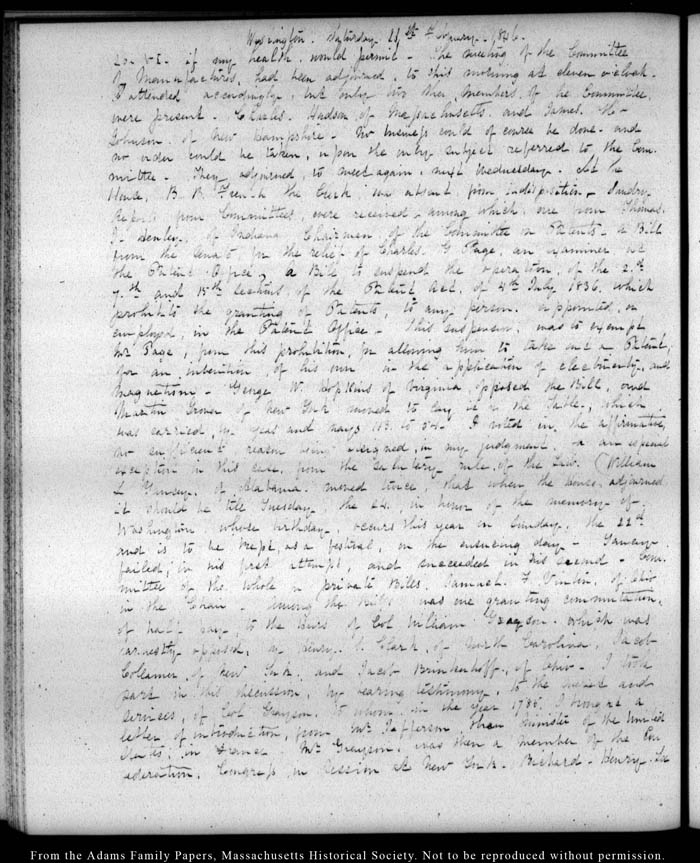 Washington. Saturday 21st February. 1846.
20. V.I. if my health would permit - The meeting of the Committee
of Manufactures, had been adjourned, to this morning at eleven o'clock.
I attended accordingly, but only two other members of the Committee,
were present - Charles Hudson of Massachusetts and James H.
Johnson of New Hampshire - No business could of course be done - and
no order could be taken, upon the only subject referred to the Com-
mittee - They adjourned, to meet again, next Wednesday. At the
House, B. B. French the Clerk, was absent from indisposition - Sundry
Reports from Committees, were received - among which, one from Thomas
J. Henley, of Indiana Chairman of the Committee on Patents - a Bill
from the Senate, for the relief of Charles G Page, an examiner in
the Patent Office, a Bill to suspend the operation, of the 2nd
7th and 15th Sections, of the Patent Act, of 4th July 1836, which
prohibits the granting of Patents, to any person, appointed, or
employed, in the Patent Office - This suspension, was to exempt
Mr Page, from this prohibition, for allowing him to take out a Patent,
for an invention of his own in the application of electricity, and
magnetism - George W. Hopkins of Virginia opposed the Bill, and
Martin Grover of New York moved to lay it on the Table, which
was carried, by yeas and nays 113. to 54. I voted in the affirmative,
no sufficient reason being assigned, in my judgment for an especial
exception in this case, from the salutary rule, of the Law. William
L Yancey, of Alabama moved twice, that when the house adjourned
it should be till Tuesday, the 24., in honor of the memory of
Washington whose birthday, occurs this year on Sunday, the 22d
and is to be kept, as a festival, on the ensuing day - Yancey
failed, in his first attempt, and succeeded in his second - Com-
mittee of the whole on private Bills. Samuel F. Vinton, of Ohio
in the Chair - Among the Bills was one granting commutation,
of half pay, to the heirs of Col William Grayson, which was
earnestly opposed, by Henry S. Clark, of North Carolina, Jacob
Collamer, of New York, and Jacob Brinkerhoff, of Ohio - I took
part in this discussion, by bearing testimony, to the merit and
services, of Col Grayson, to whom in the year 1785. I brought a
letter of introduction, from Mr Jefferson, then minister of the United
States, in France. Mr Grayson, was then a member of the Con-
federation, Congress, in session at New York. Richard - Henry - Lee
From the Adams Family Papers, Massachusetts Historical Society. Not to be reproduced without permission.